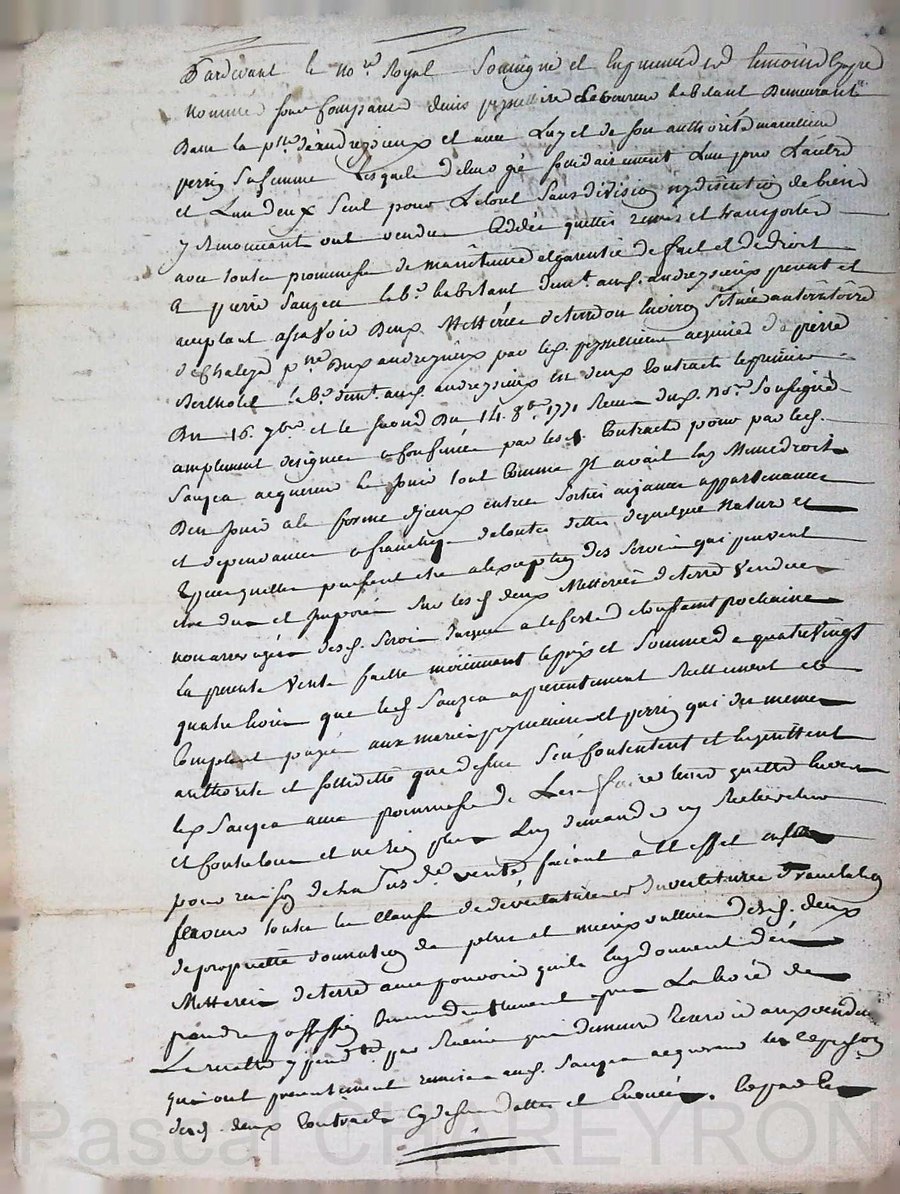 Pardevant le no.re Royal Soussigné et En presence des temoins Cy apres
nommés fut Comparu denis peyssellier Laboureur habitant Demeurant
Dans la p.sse d'andrezieux et avec Luy et de son authorité marcelline
perrin Sa femme Lesquels de leur gré solidairement L'un pour L'autre
et L'un deux Seul pour Le tout Sans division ny discution de biens
y Renonceant ont vendu Cédés quittés remis et transportés
avec toutes promesses de maintenue et garentie de fait et de droit
a pierre Sauzea lab.r habitant dem.t aud. andrezieux present et
acceptant assavoir deux Mettérées de terre ou Environ Située au territoire
de Chaleya p.sse Dud andrezieux par les peyssellier acquises de pierre
Bertholet lab.r dem.t aud. andrezieux En deux Contracts le premier
Du 16. 7bre et le second Du 14. 8bre 1771 Receu Dud. No.re Soussigné
amplement designée Et Confinée par lesd. Contracts pour par led.
Sauzea acquereur En Jouir tout Comme Il avait Luy Meme droit
D'en Jouir a la forme d'jceux entrées Sorties aizances appartenances
et dependances Et franches de toutes dettes de quelque Nature et
Especes quelles puissent etre a l'exception des Servis qui peuvent
etre dus et Imposés Sur lesd. deux Mettérées de terre Vendues
non arreragées desd. Servis Jusques a la feste de toussaint prochaine
la presente Vente faitte moiennant le prix et Somme de quatre Vingt
quatre livres que led Sauzea a presentement Reellement et
Comptant payée aux mariés peyssellier et perrin qui de meme
authorité et solidité que dessus S'en Contentent et En quittent
led Sauzea avec promesse de L'en faire tenir quitte Envers
et Contre tous et ne rien plus Luy demander ny Rechercher
pour raison de La Sus d.e vente faisant a Cet effet
toutes les Clauses de devestiture et Investiture Translation
de proprietté donnation de plus et mieux vallue desd. deux
Metterées de terre avec pouvoir quils luy donnent d'en
prendre possession
qui demeure Reservé aux vendeurs
qui ont presentement remis aud. Sauzea acquereur les expeditions
desd. deux Contracts Cy dessus dattés et Enoncés.
Pascal CHAREYRON